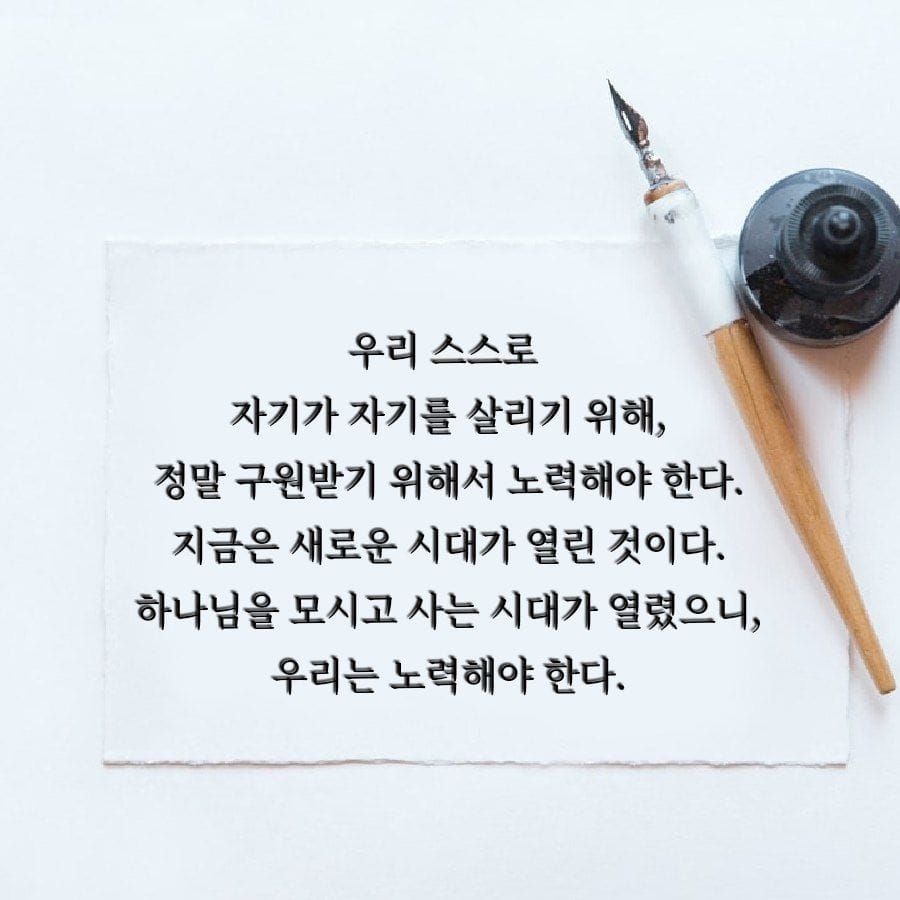 우리 스스로
자기가 자기를 살리기 위해,
정말 구원받기 위해서 노력해야 한다.
지금은 새로운 시대가 열린 것이다.
하나님을 모시고 사는 시대가 열렸으니,
우리는 노력해야 한다.